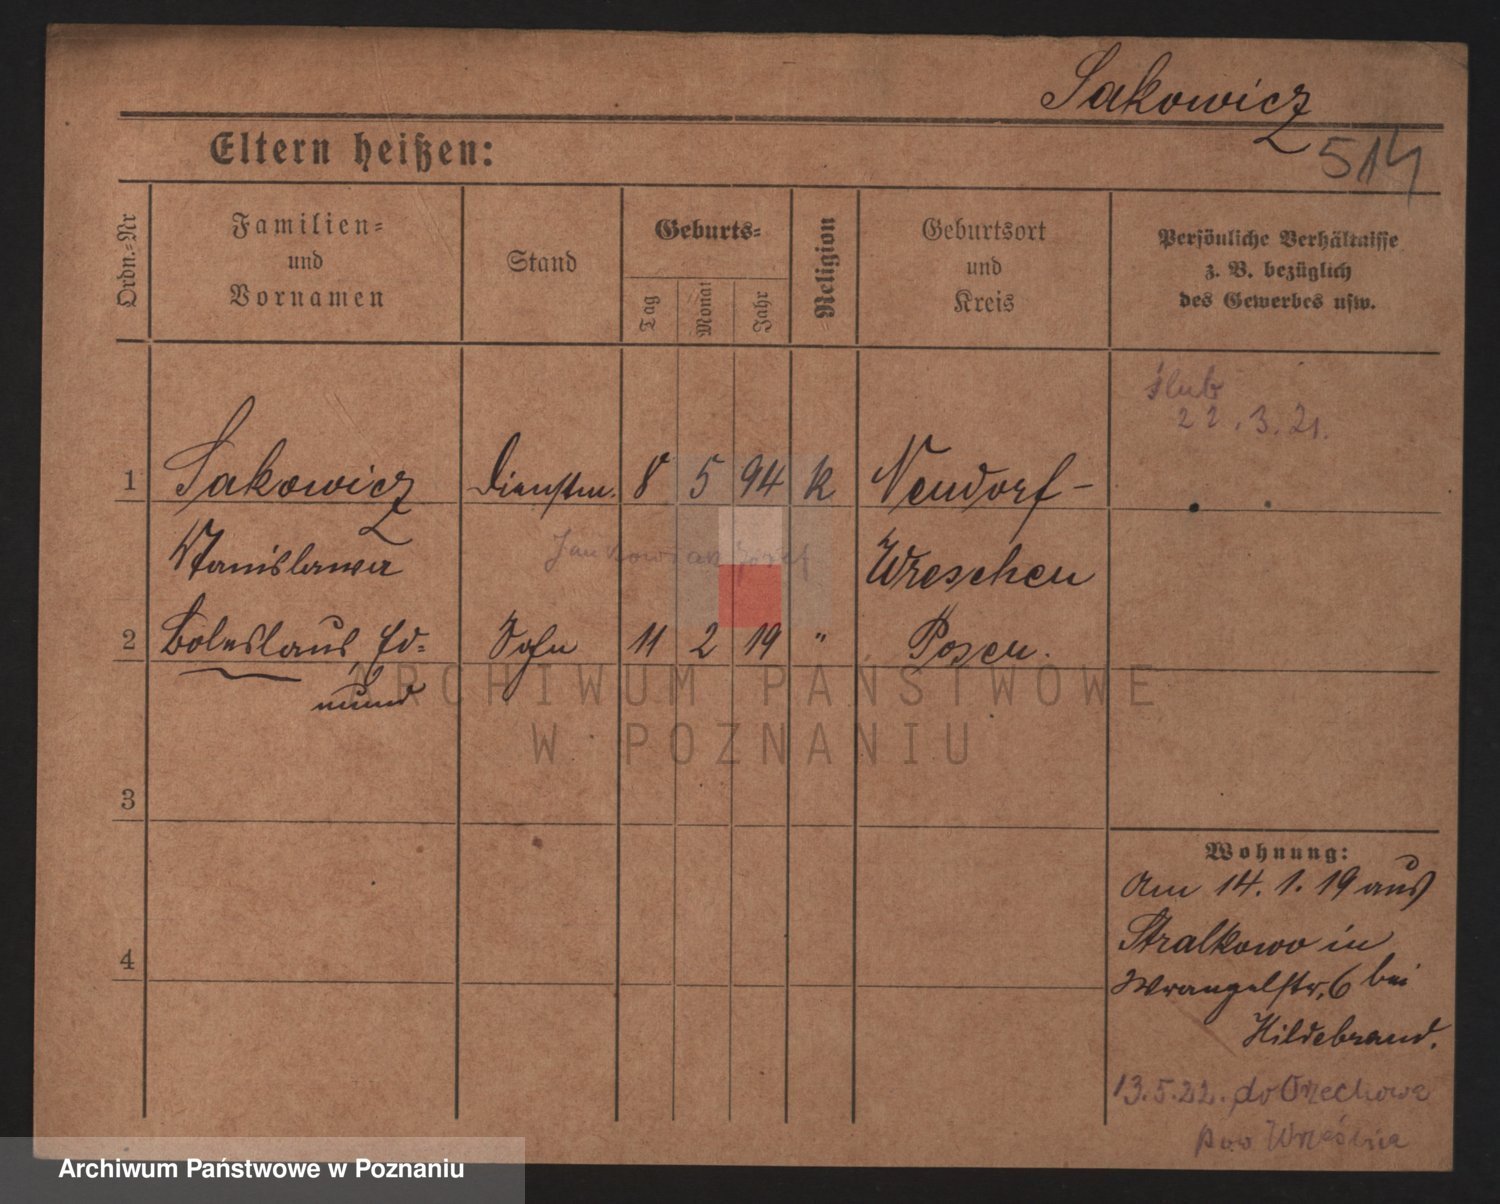 Sakowicz
514
Eltern heißen:
Ordn.=Nr
Familien=
und
Vornamen
Stand
Geburts=
Tag
Monat
Jahr
Religion
Geburtsort
und
Kreis
Persönliche Verhältnisse
z. B. bezüglich
des Gewerbes usw.
ślub
22.3.21.
1 Sakowicz Dienstm. 8 5 94 k Neudorf-
Stanislawa Wreschen
Jankowiak Józef
2 Boleslaus Ed= Sohn 11 2 19 " Posen.
mund
3
4
Wohnung:
Am 14.1.19 aus
Stralkowo in
Wrangelstr. 6 bei
Hildebrand.
13.5.22. do Orzechowa
pow Września
ARCHIWUM PAŃSTWOWE
W POZNANIU
Archiwum Państwowe w Poznaniu